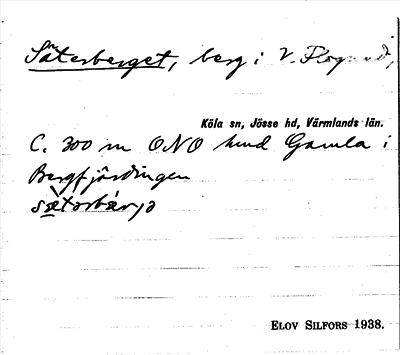 Säterberget, berg i V. Flogned,
Köla sn, Jösse hd, Värmlands län.
C. 300 m ONO hund Gamla i
Bergfjärdingen
sæ̀tərbærjə
ELOV SILFORS 1938.